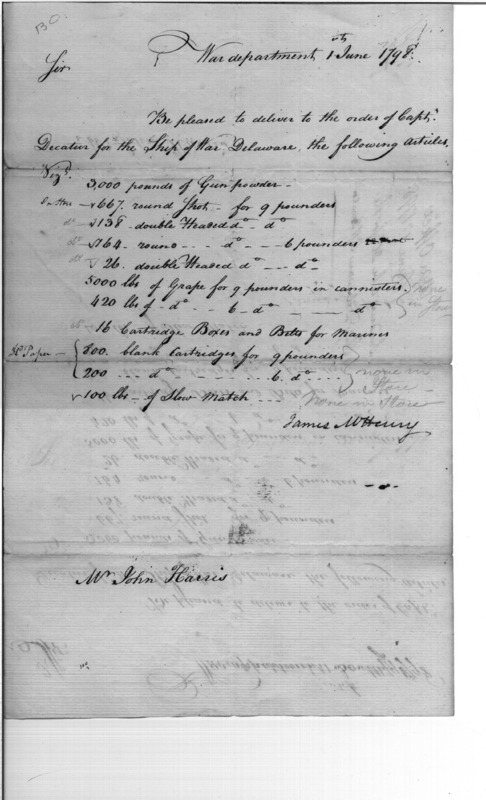 130
War department 1th June 1798.
Sir,
Be pleased to deliver to the order of Captn.
Decatur for the Ship of War, Delaware, the following Articles.
Vizt.
3,000 pounds of Gun powder -
667. round Shot - for 9 pounders
do - 138. double Headed do - do
do - 164. round - - - do - - - 6 pounders
do 26. double Headed do - - - do -
5000 lbs of Grape for 9 pounders in cannisters } none
420 lbs of - do - 6 - do - do } in
16 Cartridge Boxes and Belts for Marines
Paper - { 800. blank Cartridges for 9 pounders } none in
{ 200 - - - do - - - 6. do - - - } Store
100 lbs - of Slow Match - - - none in Store
James McHenry
Mr. John Harris